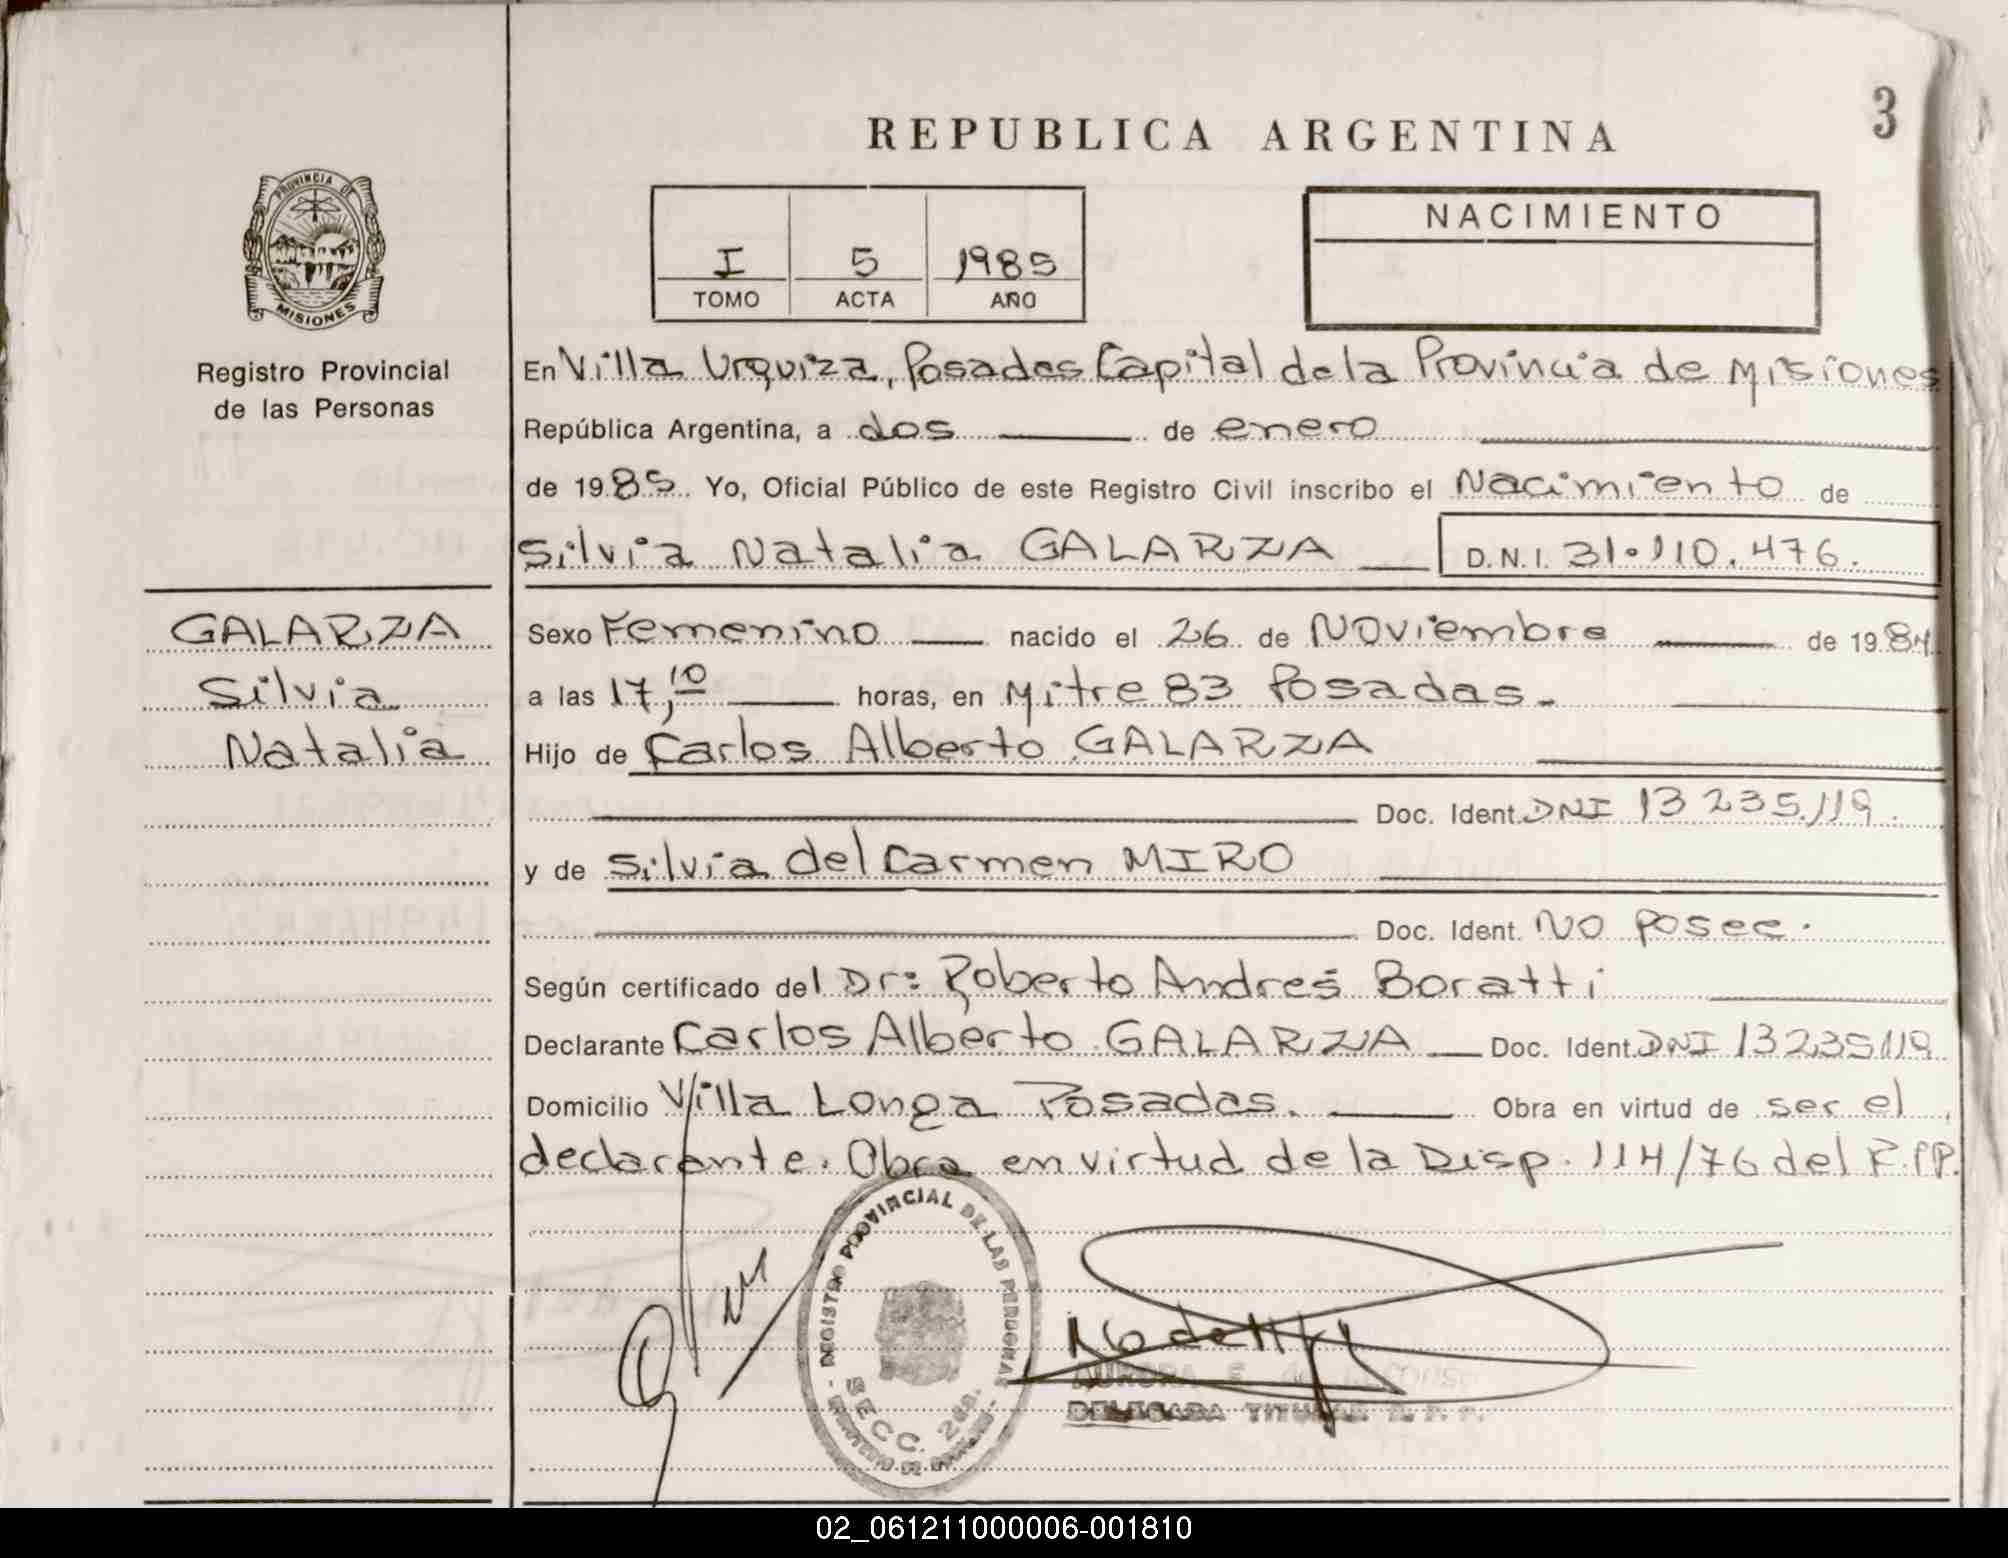 3
REPUBLICA ARGENTINA
PROVINCIA DE
MISIONES
I 5 1985
TOMO ACTA AÑO
NACIMIENTO
Registro Provincial
de las Personas
En Villa Urquiza, Posadas Capital de la Provincia de Misiones
República Argentina, a dos de enero
de 1985. Yo, Oficial Público de este Registro Civil inscribo el Nacimiento de
Silvia Natalia GALARZA D.N.I. 31.110.476.
GALARZA
Silvia
Natalia
Sexo Femenino nacido el 26 de Noviembre de 1984
a las 17,10 horas, en Mitre 83 Posadas.
Hijo de Carlos Alberto GALARZA
Doc. Ident. DNI 13 235.119.
y de Silvia del Carmen MIRO
Doc. Ident. No posee.
Según certificado del Dr: Roberto Andres Boratti
Declarante Carlos Alberto GALARZA Doc. Ident. DNI 13235119
Domicilio Villa Longa Posadas. Obra en virtud de ser el
declarante. Obra en virtud de la Disp. 114/76 del R.PP.
REGISTRO PROVINCIAL DE LAS PERSONAS
SECC. 2da.
AURORA E.
DELEGADA TITULAR R. P. P.
02_061211000006-001810